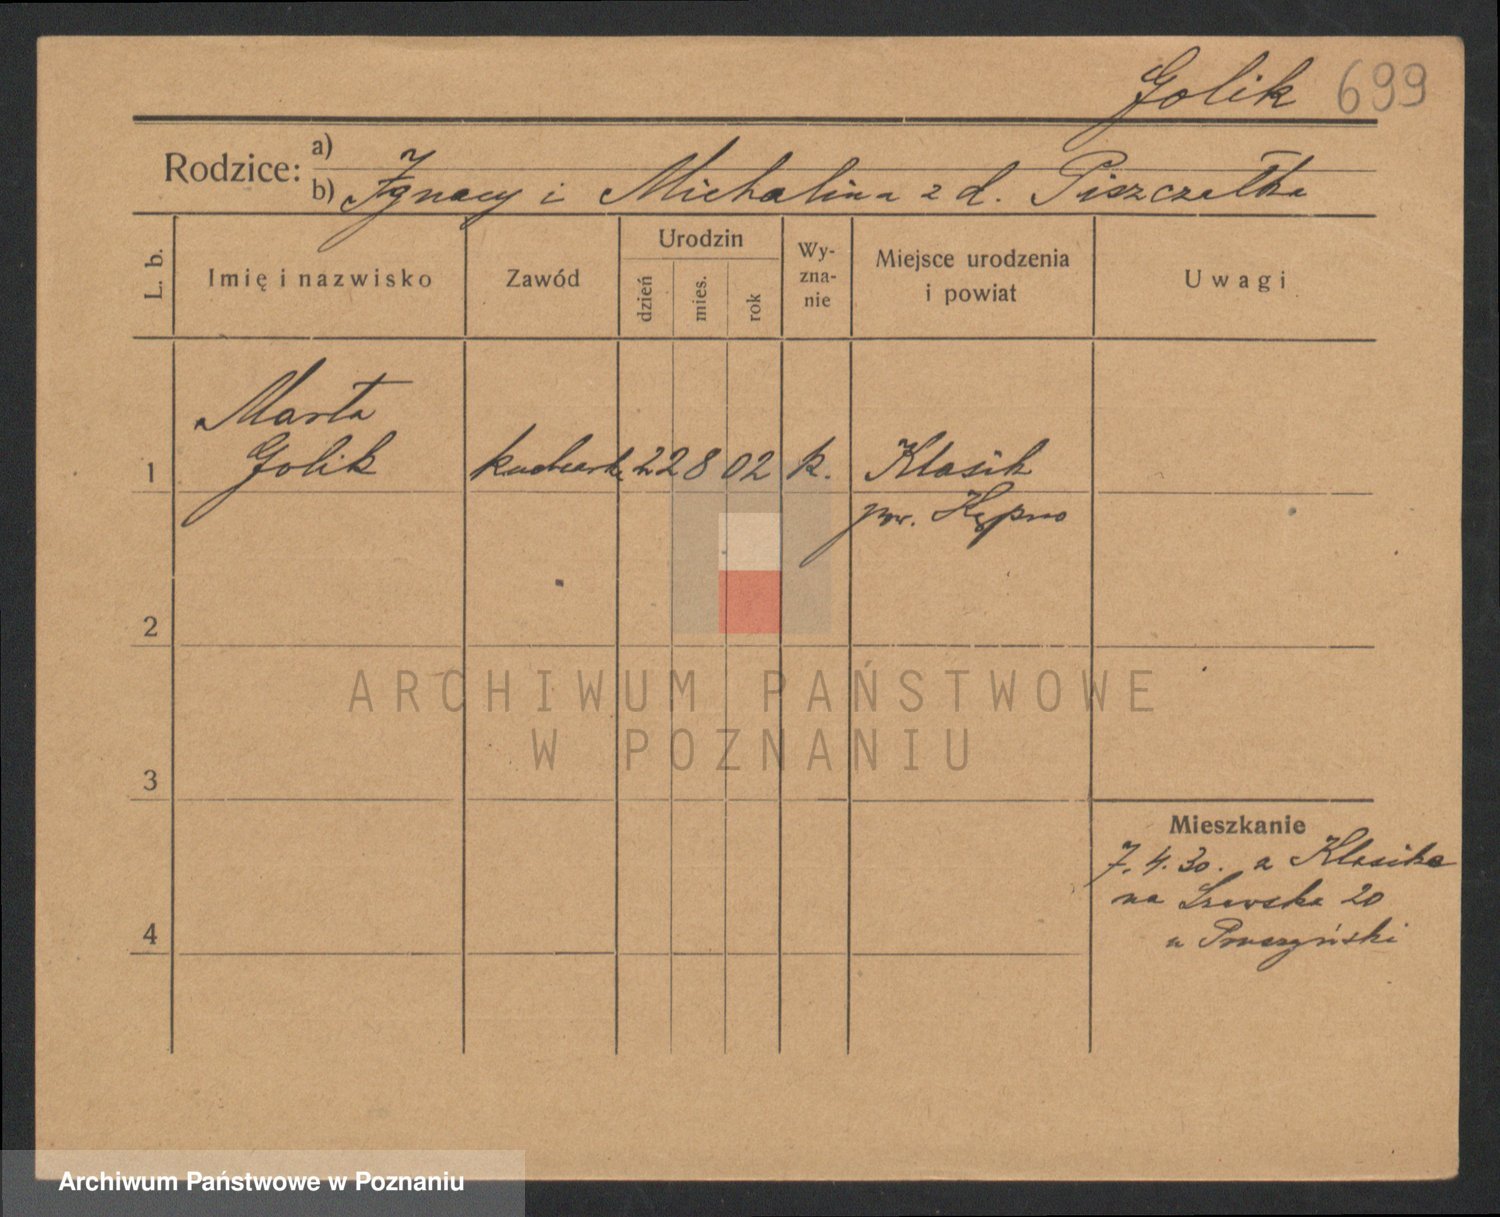 Golik 699
Rodzice: a)
b) Ignacy i Michalina z d. Piszczałka
L. b.
Imię i nazwisko
Zawód
Urodzin
dzień
mies.
rok
Wy-
zna-
nie
Miejsce urodzenia
i powiat
Uwagi
Marta
1 Golik kucharka 22 8 02 k. Klasik
pow. Kępno
2
ARCHIWUM PAŃSTWOWE
W POZNANIU
3
Mieszkanie
7.4.30. z Klasika
na Szewska 20
4
u Pruszyński
Archiwum Państwowe w Poznaniu